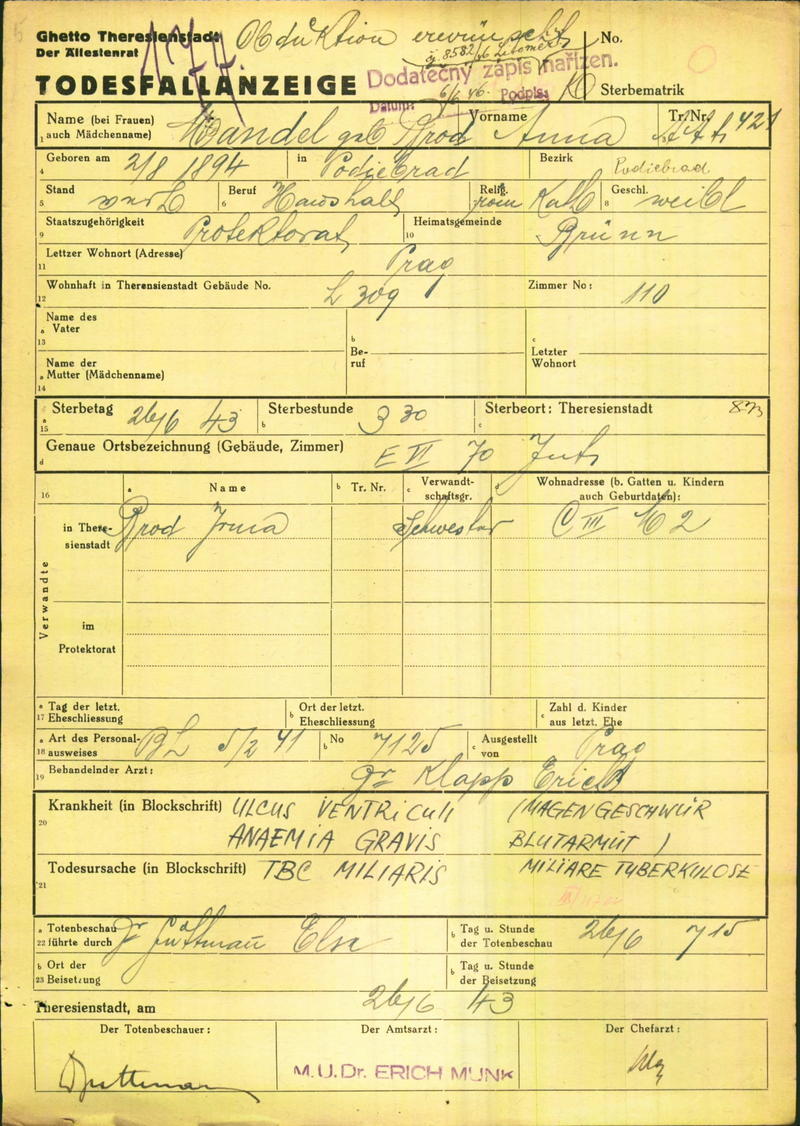 Ghetto Theresienstadt Obduktion erwünscht No.
Der Ältestenrat
čj. 8582/46
Dodatečný zápis nařízen.
TODESFALLANZEIGE 6/6 46. Sterbematrik
Datum: Podpis:
Name (bei Frauen) Mandel geb Brod Vorname Anna Tr. Nr. 421
1 auch Mädchenname)
Geboren am 2/8 1894 in Podiebrad Bezirk Podiebrad
4
Stand verh Beruf Haushalt Relig. röm Kath Geschl. weibl
5 6 8
Staatszugehörigkeit Protektorat Heimatsgemeinde Brünn
9 10
Lettzer Wohnort (Adresse) Prag
11
Wohnhaft in Therensienstadt Gebäude No. L 309 Zimmer No: 110
12
Name des
a Vater b c
13 Be- Letzter
Name der ruf Wohnort
a Mutter (Mädchenname)
14
Sterbetag 26/6 43 Sterbestunde 3 30 Sterbeort: Theresienstadt
a 15 b c
Genaue Ortsbezeichnung (Gebäude, Zimmer) E VI 70
d
16 a Name b Tr. Nr. c Verwandt- d Wohnadresse (b. Gatten u. Kindern
schaftsgr. auch Geburtdaten):
Verwandte
in There- Brod Irma Schwester C III 2
sienstadt
im
Protektorat
a Tag der letzt. Ort der letzt. Zahl d. Kinder
17 Eheschliessung b Eheschliessung c aus letzt. Ehe
a Art des Personal- BL 5/2 41 b No 7125 c Ausgestellt Prag
18 ausweises von
19 Behandelnder Arzt: Dr Klapp Erich
Krankheit (in Blockschrift) ULCUS VENTRICULI (MAGENGESCHWÜR
20 ANAEMIA GRAVIS BLUTARMUT )
Todesursache (in Blockschrift) TBC MILIARIS MILIARE TUBERKULOSE
21
a Totenbeschau Dr Guttmann Elsa b Tag u. Stunde 26/6 7 15
22 führte durch der Totenbeschau
b Ort der b Tag u. Stunde
23 Beisetzung der Beisetzung
Theresienstadt, am 26/6 43
Der Totenbeschauer: Der Amtsarzt: Der Chefarzt:
Guttmann M.U.Dr. ERICH MUNK